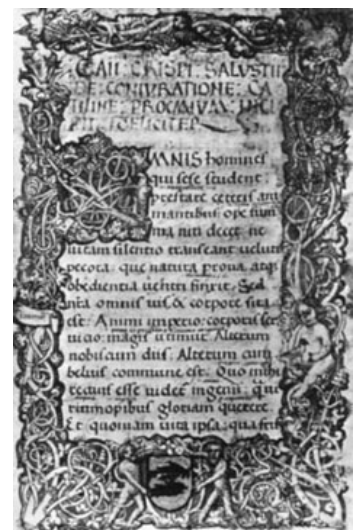 :C: CAII: CRISPI: SALUSTII
DE: CONIURATIONE: CA
TILINE: PROEMIUM: INCI
PIT: FOELICITER
OMNIS homines
qui sese student
prestare ceteris ani
mantibus: ope sum
ma niti decet: ne
uitam silentio transeant ueluti
pecora: que natura prona: atq;
obedientia uentri finxit. Sed
nostra omnis uis & corpore sita
est: Animi imperio: corporis ser
uicio: magis utimur. Alterum
nobis cum diis: Alterum cum
beluis commune est. Quo mihi
rectius esse uidetur ingenii: qui
opibus gloriam querere.
Et quoniam uita ipsa: qua frui